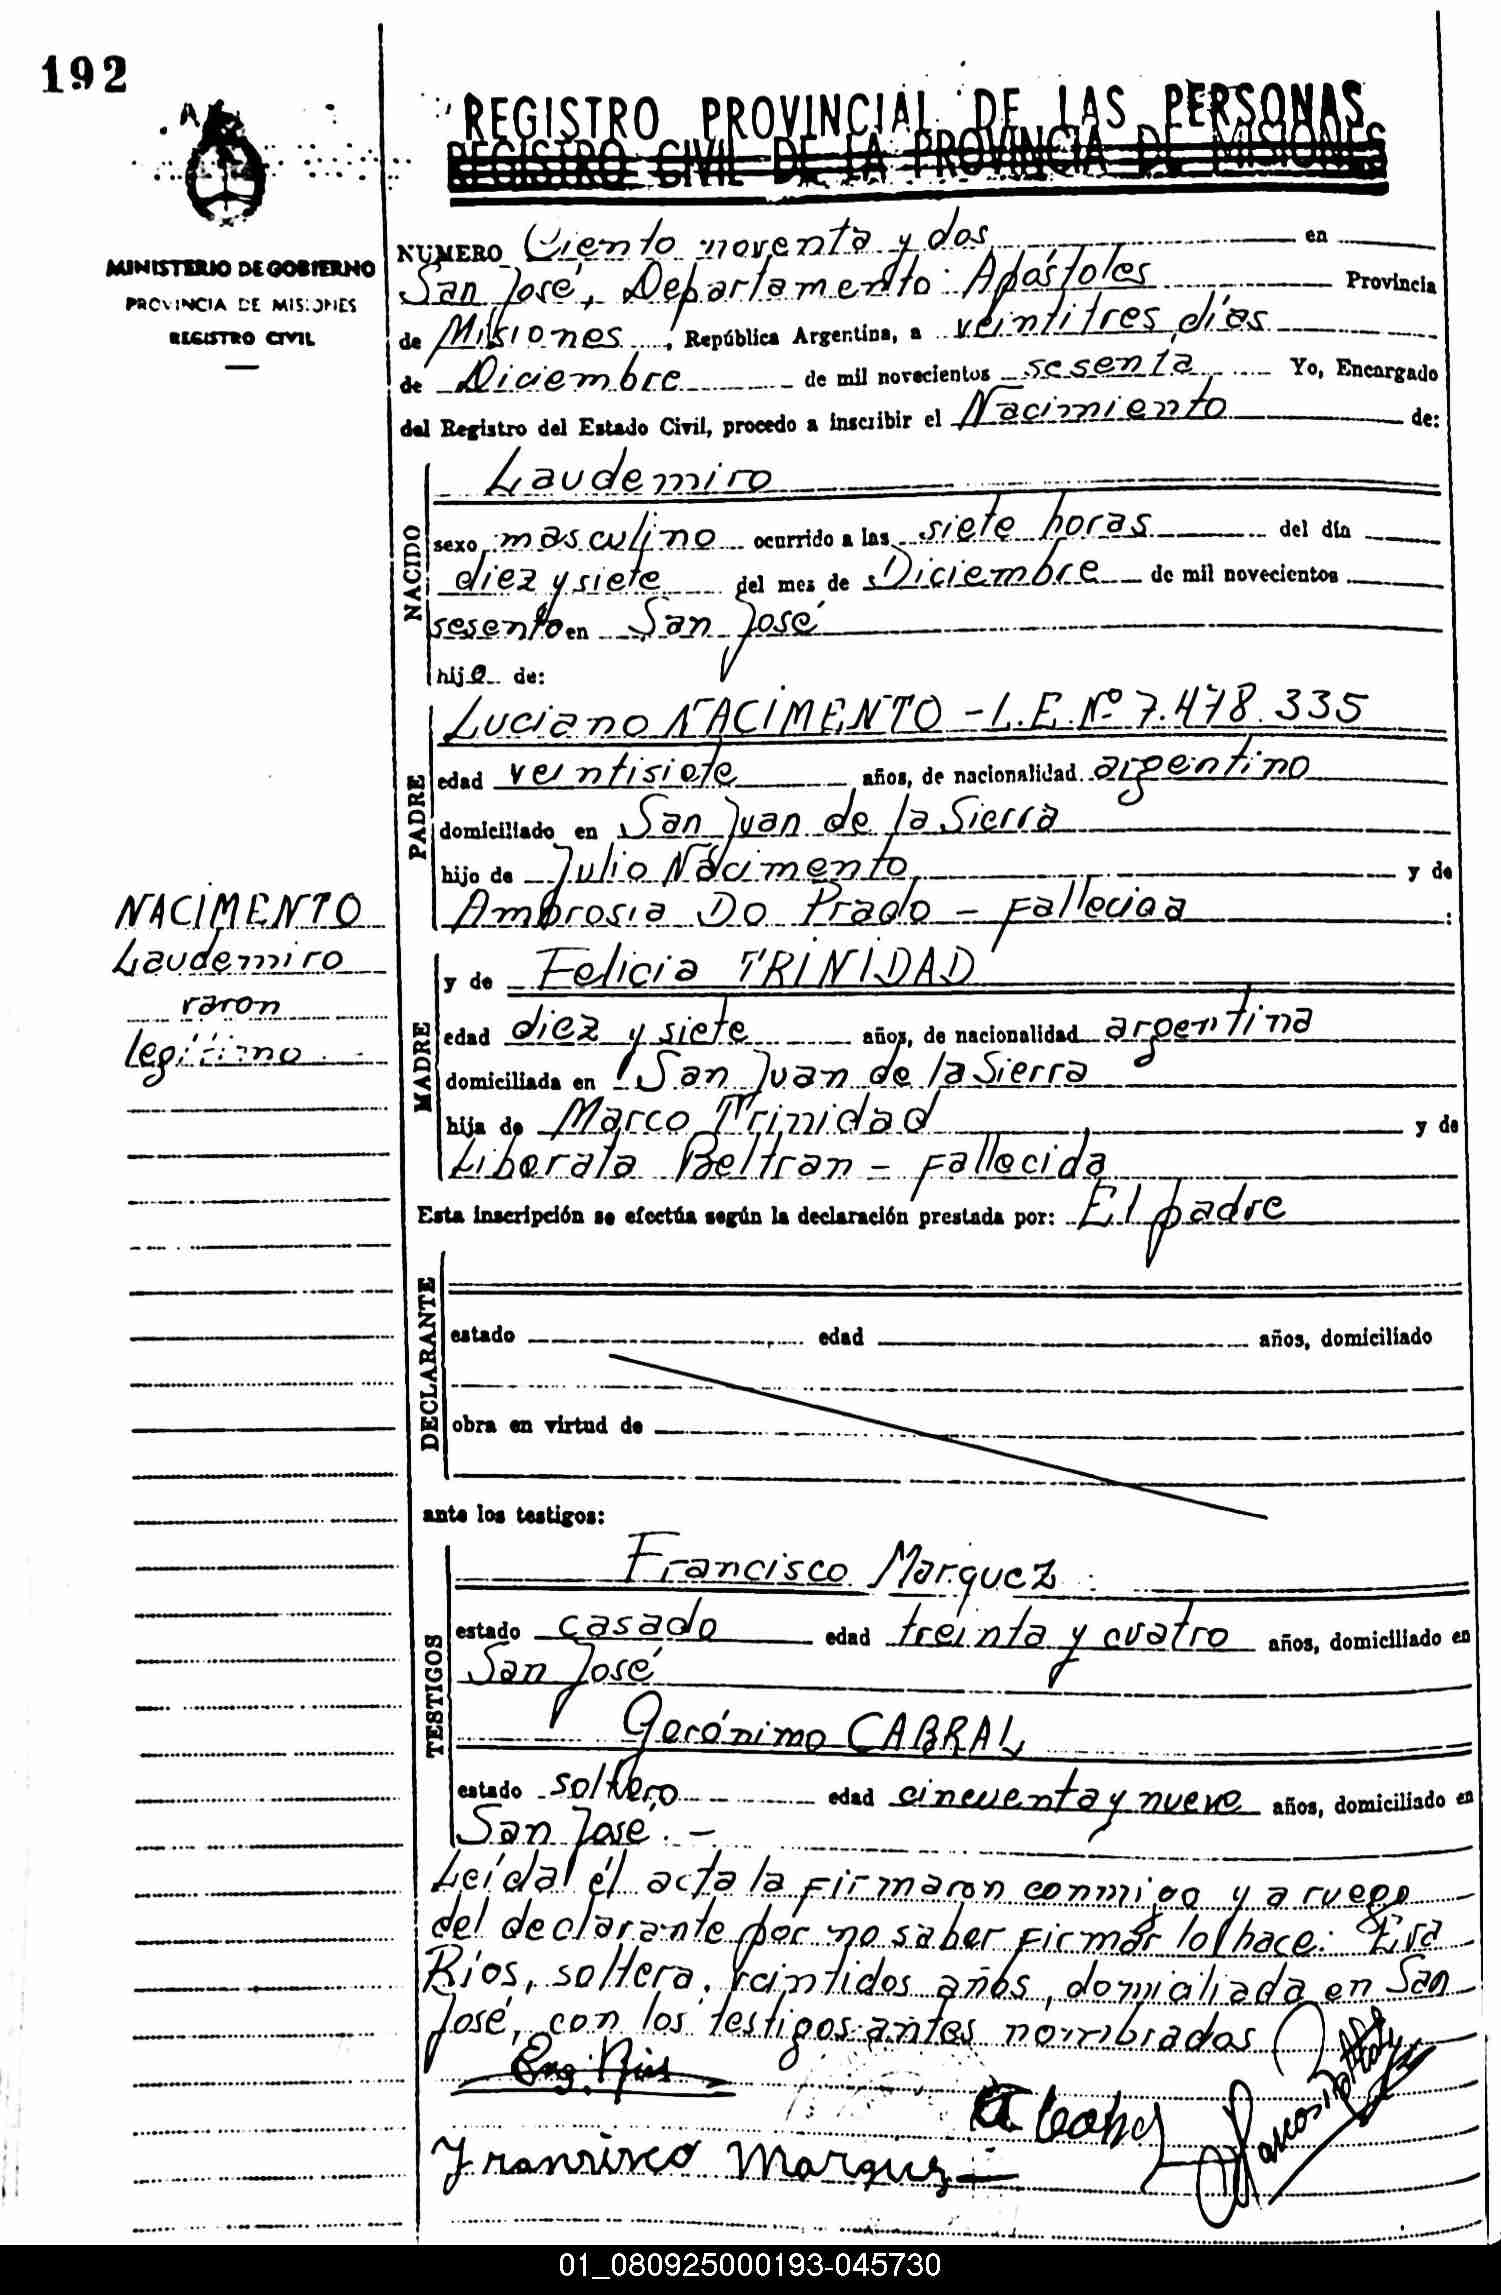 192
REGISTRO PROVINCIAL DE LAS PERSONAS
REGISTRO CIVIL DE LA PROVINCIA DE MISIONES
MINISTERIO DE GOBIERNO
PROVINCIA DE MISIONES
REGISTRO CIVIL
NUMERO Ciento noventa y dos en
San José, Departamento Apóstoles Provincia
de Misiones, República Argentina, a veintitres días
de Diciembre de mil novecientos sesenta Yo, Encargado
del Registro del Estado Civil, procedo a inscribir el Nacimiento de:
NACIDO
Laudemiro
sexo masculino ocurrido a las siete horas del día
diez y siete del mes de Diciembre de mil novecientos
sesenta en San José
hijo de:
PADRE
Luciano NACIMENTO - L.E. Nº 7.478.335
edad veintisiete años, de nacionalidad argentino
domiciliado en San Juan de la Sierra
hijo de Julio Nacimento y de
Ambrosia Do Prado - Fallecida :
NACIMENTO
Laudemiro
varon
legítimo
MADRE
y de Felicia TRINIDAD
edad diez y siete años, de nacionalidad argentina
domiciliada en San Juan de la Sierra
hija de Marco Trinidad y de
Liberata Beltran - Fallecida
Esta inscripción se efectúa según la declaración prestada por: El padre
DECLARANTE
estado edad años, domiciliado
obra en virtud de
ante los testigos:
TESTIGOS
Francisco Marquez
estado casado edad treinta y cuatro años, domiciliado en
San José
Gerónimo CABRAL
estado soltero edad cincuenta y nueve años, domiciliado en
San José. -
Leída el acta la Firmaron conmigo y a ruego
del declarante por no saber Firmar lo hace:
Rios, soltera, veintidos años, domiciliada en San
José, con los testigos antes nombrados
Rios
Francisco Marquez
01_080925000193-045730